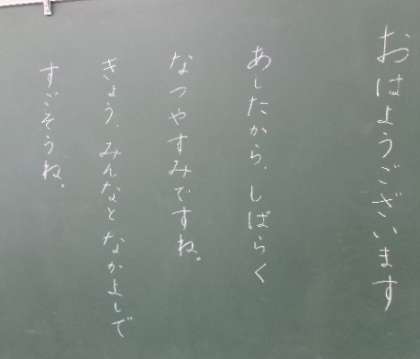 おはようございます
あしたから、しばらく
なつやすみですね。
きょう、みんなとなかよしで
すごそうね。